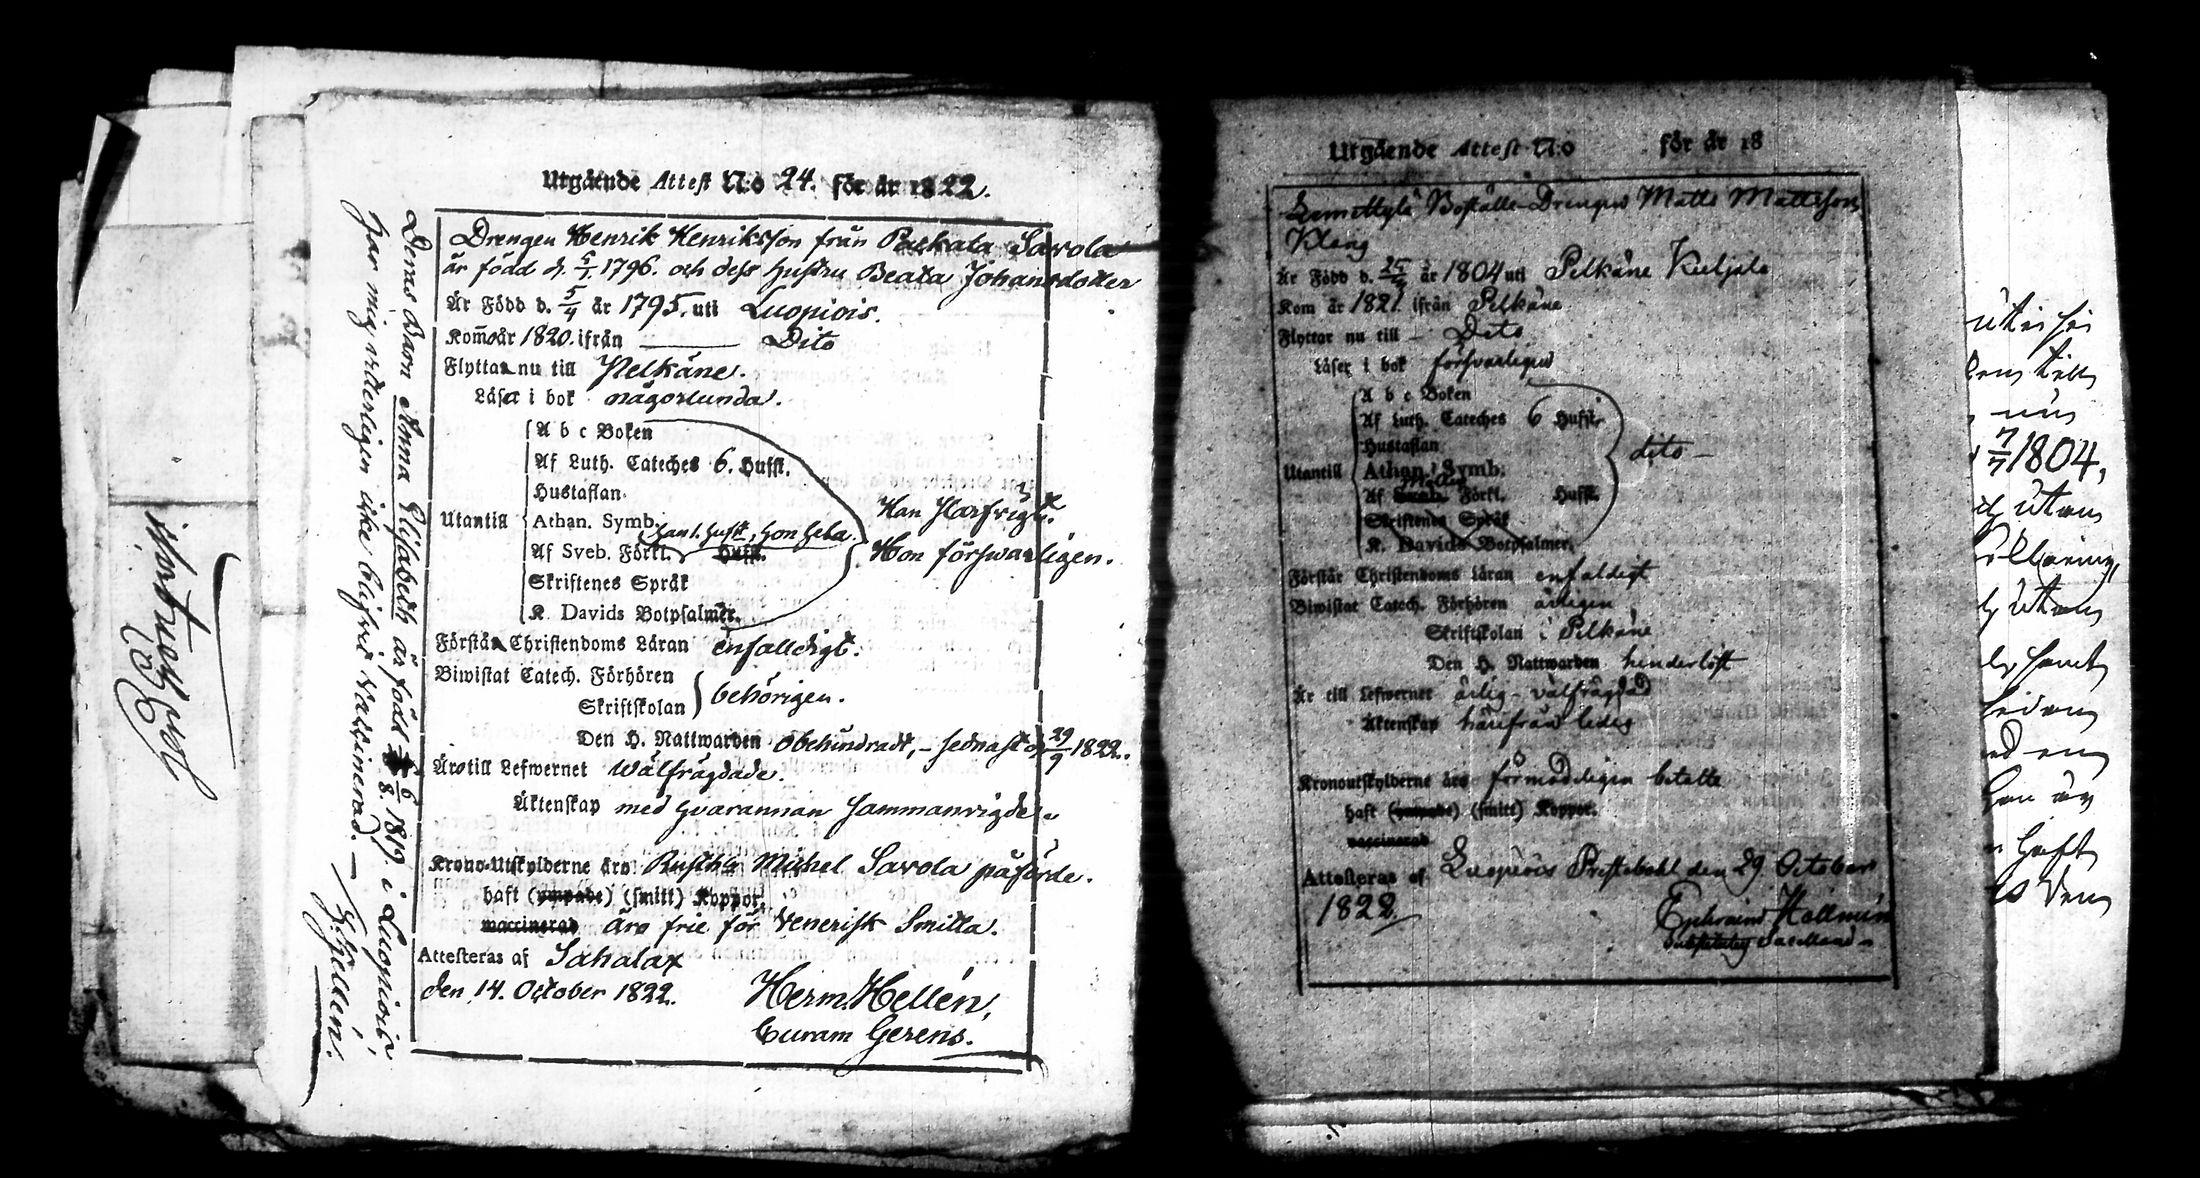 Utgående Attest N:o 24. för år 1822.
Drengen Henrik Henriksson från Pakkala Savola
är född d. 5/1 1796. och dess hustru Beata Johansdotter
Är Född d. 5/4 år 1795. uti Luopiois.
Kom̄o år 1820. ifrån ——— Dito
Flytta nu till Pelkäne.
Läser i bok någorlunda.
Utantill
A b c Boken
Af Luth. Cateches 6. Hufst.
Hustaflan.
Athan. Symb.
Af Sveb. Förkl. han 1. Hufst, hon hela Hufst.
Skriftenes Språk
K. Davids Botpsalmer.
Han Klarfrigt.
Hon förswarligen.
Förstå Christendoms Läran enfalldigt.
Biwistat Catech. Förhören
Skriftskolan behörigen.
Den H. Nattwarden obehindradt, – sednast d. 29/9 1822.
Äro till Lefwernet Wälfrägdade.
Äktenskap med hvarannan sammanvigde.
Krono-Utskylderne äro Rusthln Michel Savola påförde.
haft (ympade) (smitt) Koppor.
vaccinerad äro frie för Venerisk Smitta.
Attesteras af Sahalax
den 14. October 1822. Herm. Hellén,
Curam Gerens.
Deras Barn Anna Elisabeth är född 6/8 1819. i Luopiois,
har mig veterligen icke blifvit Vaccinerad. —
H. Hellén.
Utgående Attest N:o för år 18
Boställe-Drengen Matts Mattsson
Klang
Är Född d. år 1804 uti Pelkäne Kuljala
Kom år 1821. ifrån Pelkäne
Flyttar nu till — Dito
Läser i bok försvarligen
Utantill
A b c Boken
Af Luth. Cateches 6 Hufst.
Hustaflan
Athan. Symb.
Af Sveb. Förkl. Hufst.
Skriftenes Språk
K. Davids Botpsalmer.
dito —
Förstår Christendoms Läran enfaldigt
Biwistat Catech. Förhören årligen
Skriftskolan i Pelkäne
Den H. Nattwarden
Är till Lefwernet ärlig – välfrägdad
Äktenskap härifrån ledig
Kronoutskylderne äro förmodeligen betalte
haft (ympade) (smitt) Koppor.
vaccinerad
Attesteras af Luopiois Prestebohl den 29 October
1822. Ephraim Hallmén
7/7 1804,
utan
utan
haft